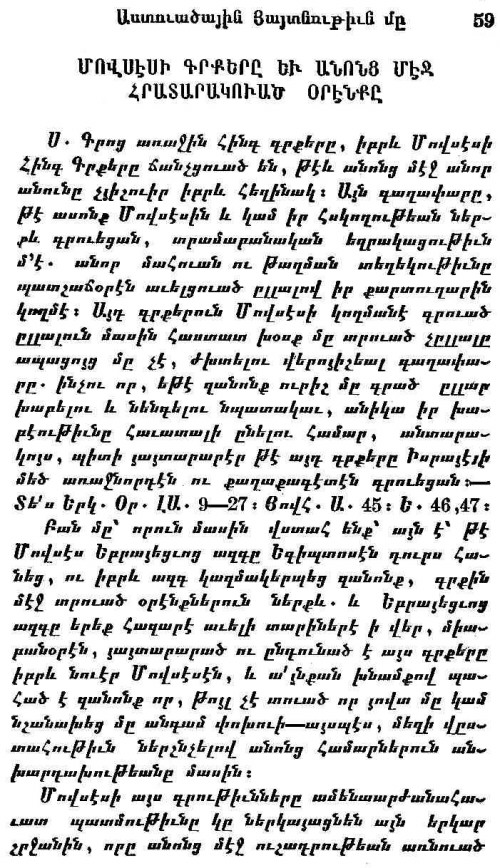 Աստուածային Յայտնութիւն մը 59
ՄՈՎՍԷՍԻ ԳՐՔԵՐԸ ԵՒ ԱՆՈՆՑ ՄԷՋ
ՀՐԱՏԱՐԱԿՈՒԱԾ ՕՐԷՆՔԸ
Ս. Գրոց առաջին Հինգ գրքերը, իբրև Մովսէսի
Հինգ Գրքերը ճանչցուած են, թէև անոնց մէջ անոր
անունը չյիշուիր իբրև Հեղինակ։ Այն գաղափարը,
թէ ասոնք Մովսէսին և կամ իր հսկողութեան ներ-
քև գրուեցան, տրամաբանական եզրակացութիւն
մ'է. անոր մահուան ու թաղման տեղեկութիւնը
պատշաճօրէն աւելցուած ըլլալով իր քարտուղարին
կողմէ։ Այդ գրքերուն Մովսէսի կողմանէ գրուած
ըլլալուն մասին հաստատ խօսք մը տրուած չըլլալը
ապացոյց մը չէ, ժխտելու վերոյիշեալ գաղափա-
րը. ինչու որ, եթէ զանոնք ուրիշ մը գրած ըլլար
խաբելու և նենգելու նպատակաւ, անիկա իր խա-
բէութիւնը հաւատալի ընելու համար, անտարա-
կոյս, պիտի յայտարարէր թէ այդ գրքերը Իսրայէլի
մեծ առաջնորդէն ու քաղաքագէտէն գրուեցան։—
Տե՛ս Երկ. Օր. ԼԱ. 9—27։ Յովհ. Ա. 45։ Ե. 46,47։
Բան մը՝ որուն մասին վստահ ենք՝ այն է՝ թէ
Մովսէս Եբրայեցւոց ազգը Եգիպտոսէն դուրս հա-
նեց, ու իբրև ազգ կազմակերպեց զանոնք, գրքին
մէջ տրուած օրէնքներուն ներքև. և Եբրայեցւոց
ազգը երեք հազարէ աւելի տարիներէ ի վեր, միա-
բանօրէն, յայտարարած ու ընդունած է այս գրքերը
իբրև նուէր Մովսէսէն, և ա՛յնքան խնամքով պա-
հած է զանոնք որ, թոյլ չէ տուած որ յովտ մը կամ
նշանախեց մը անգամ փոխուի—այսպէս, մեզի վըս-
տահութիւն ներշնչելով անոնց համարներուն ան-
խարդախութեանը մասին։
Մովսէսի այս գրութիւնները ամենաարժանահա-
ւատ պատմութիւնը կը ներկայացնեն այն երկար
շրջանին, որը անոնց մէջ ուշադրութեան առնուած